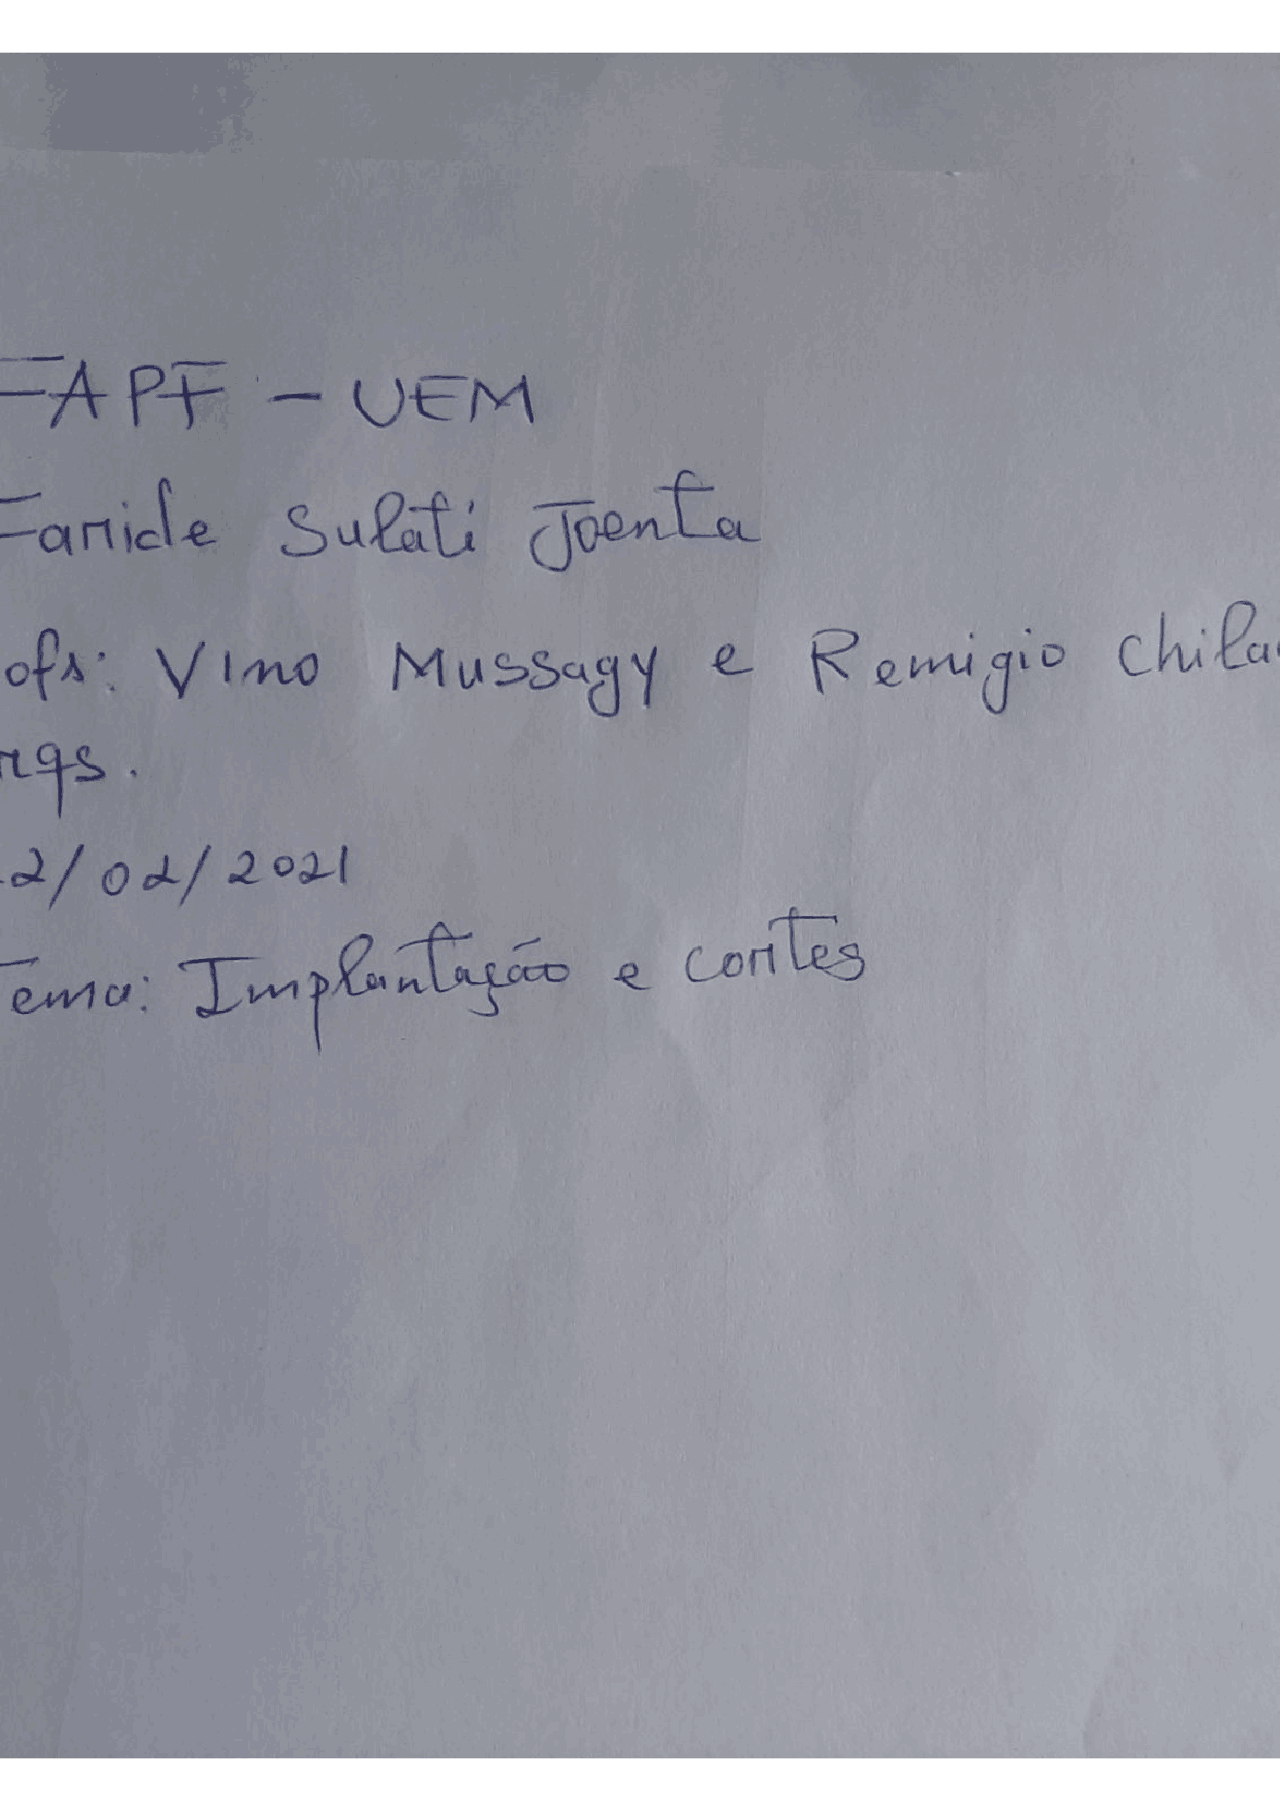 FAPF - UEM
Faride Sulati Joenta
ofs: Vino Mussagy e Remigio Chila
rqs.
2/02/2021
Tema: Implantação e cortes